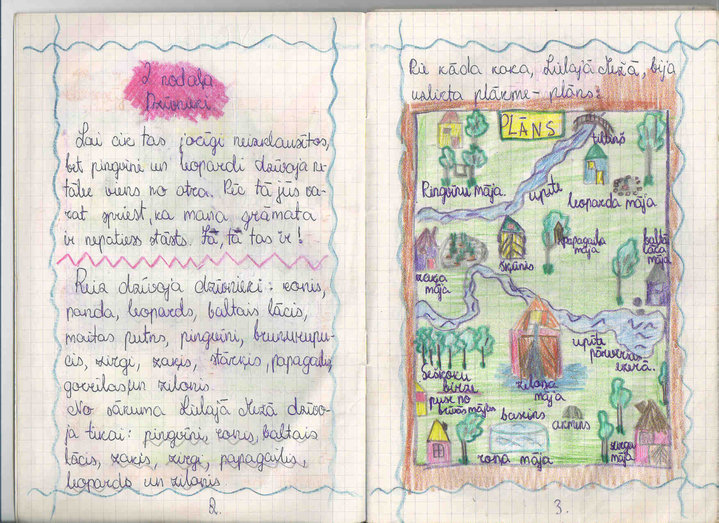 2 nodaļa
Dzīvnieki
Lai cik tas jocīgi neizklausītos,
bet pingvīni un leopardi dzīvoja ne-
tālu viens no otra. Pēc tā jūs va-
rat spriest, ka mana grāmata
ir nepatiess stāsts. Jā, tā tas ir!
Reiz dzīvoja dzīvnieki: ronis,
panda, leopards, baltais lācis,
maitas putns, pingvīni, bruņurupu-
cis, zirgi, zaķis, stārķis, papagailis,
gorillas un zilonis.
No sākuma Lielajā Mežā dzīvo-
ja tikai: pingvīni, ronis, baltais
lācis, zaķis, zirgi, papagailis,
leopards un zilonis.
2.
Pie kāda koka, Lielajā Mežā, bija
uzlikta plāksne - plāns:
PLĀNS
tiltiņš
Pingvīnu māja
upīte
leoparda māja
zaķa
māja
šķūnis
papagaiļa
māja
baltā
lāča
māja
upīte
pārvēršas
ezerā.
birzs
puse no
ziloņa
māja
baseins
akmens
roņa māja
zirgu
māja
3.